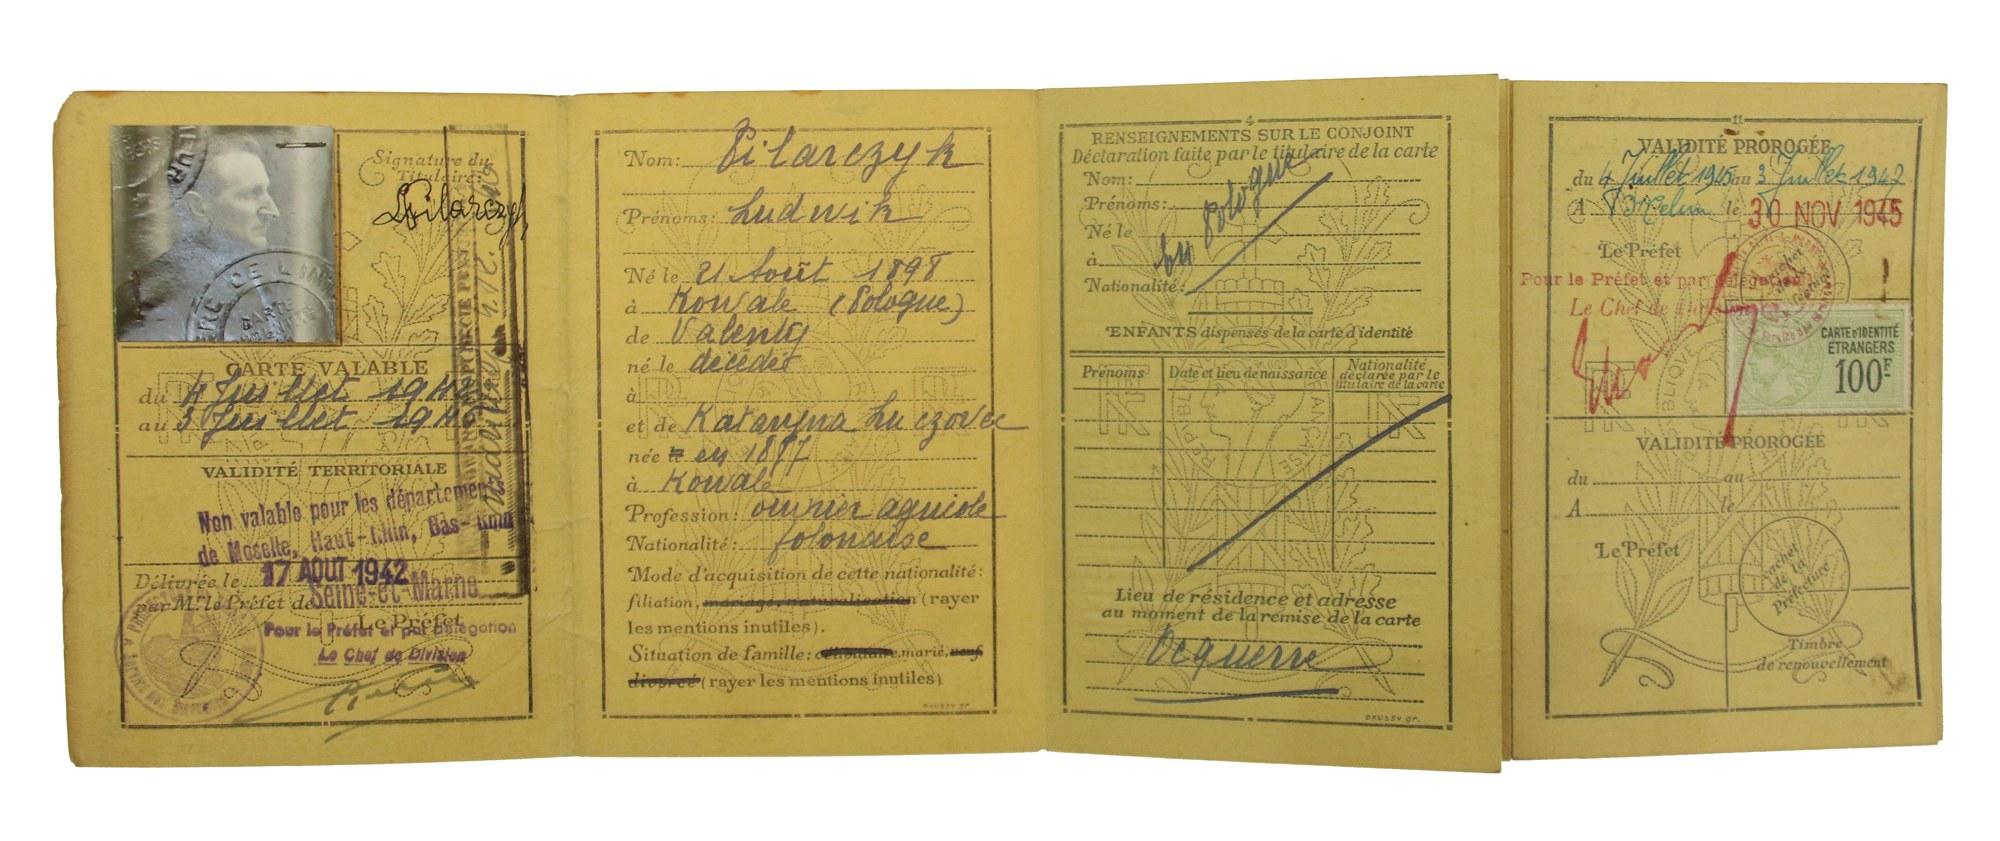 Signature du
Titulaire:
LPilarczyk
CARTE VALABLE
du 4 Juillet 1942
au 3 Juillet 194
VALIDITÉ TERRITORIALE
Non valable pour les départements
de Moselle, Haut-Rhin, Bas-Rhin
Délivrée le 17 AOUT 1942
par M. le Préfet de Seine-et-Marne
Le Préfet
Pour le Préfet et par délégation
Le Chef de Division
Nom: Pilarczyk
Prénoms: Ludwik
Né le 21 Août 1898
à Kowale (Pologne)
de Valenty
né le décédé
à
et de Katarzyna
née en 1877
à Kowale
Profession: ouvrier agricole
Nationalité: polonaise
Mode d'acquisition de cette nationalité:
filiation, mariage, naturalisation (rayer
les mentions inutiles).
Situation de famille: célibataire, marié, veuf
divorcé (rayer les mentions inutiles)
DAUSSY gr.
4
RENSEIGNEMENTS SUR LE CONJOINT
Déclaration faite par le titulaire de la carte
Nom:
Prénoms:
Né le
à
Nationalité:
en Pologne
ENFANTS dispensés de la carte d'identité
Prénoms Date et lieu de naissance Nationalité
déclarée par le
titulaire de la carte
RÉPUBLIQUE FRANÇAISE
Lieu de résidence et adresse
au moment de la remise de la carte
Ocquerre
DAUSSY gr.
11
VALIDITÉ PROROGÉE
du 4 Juillet 1945 au 3 Juillet 1947
A Melun le 30 NOV 1945
Le Préfet
Pour le Préfet et par délégation
Le Chef de Division
CARTE D'IDENTITÉ
ETRANGERS
100F
VALIDITÉ PROROGÉE
du au
A le
Le Préfet
Cachet
de la
Préfecture
Timbre
de renouvellement